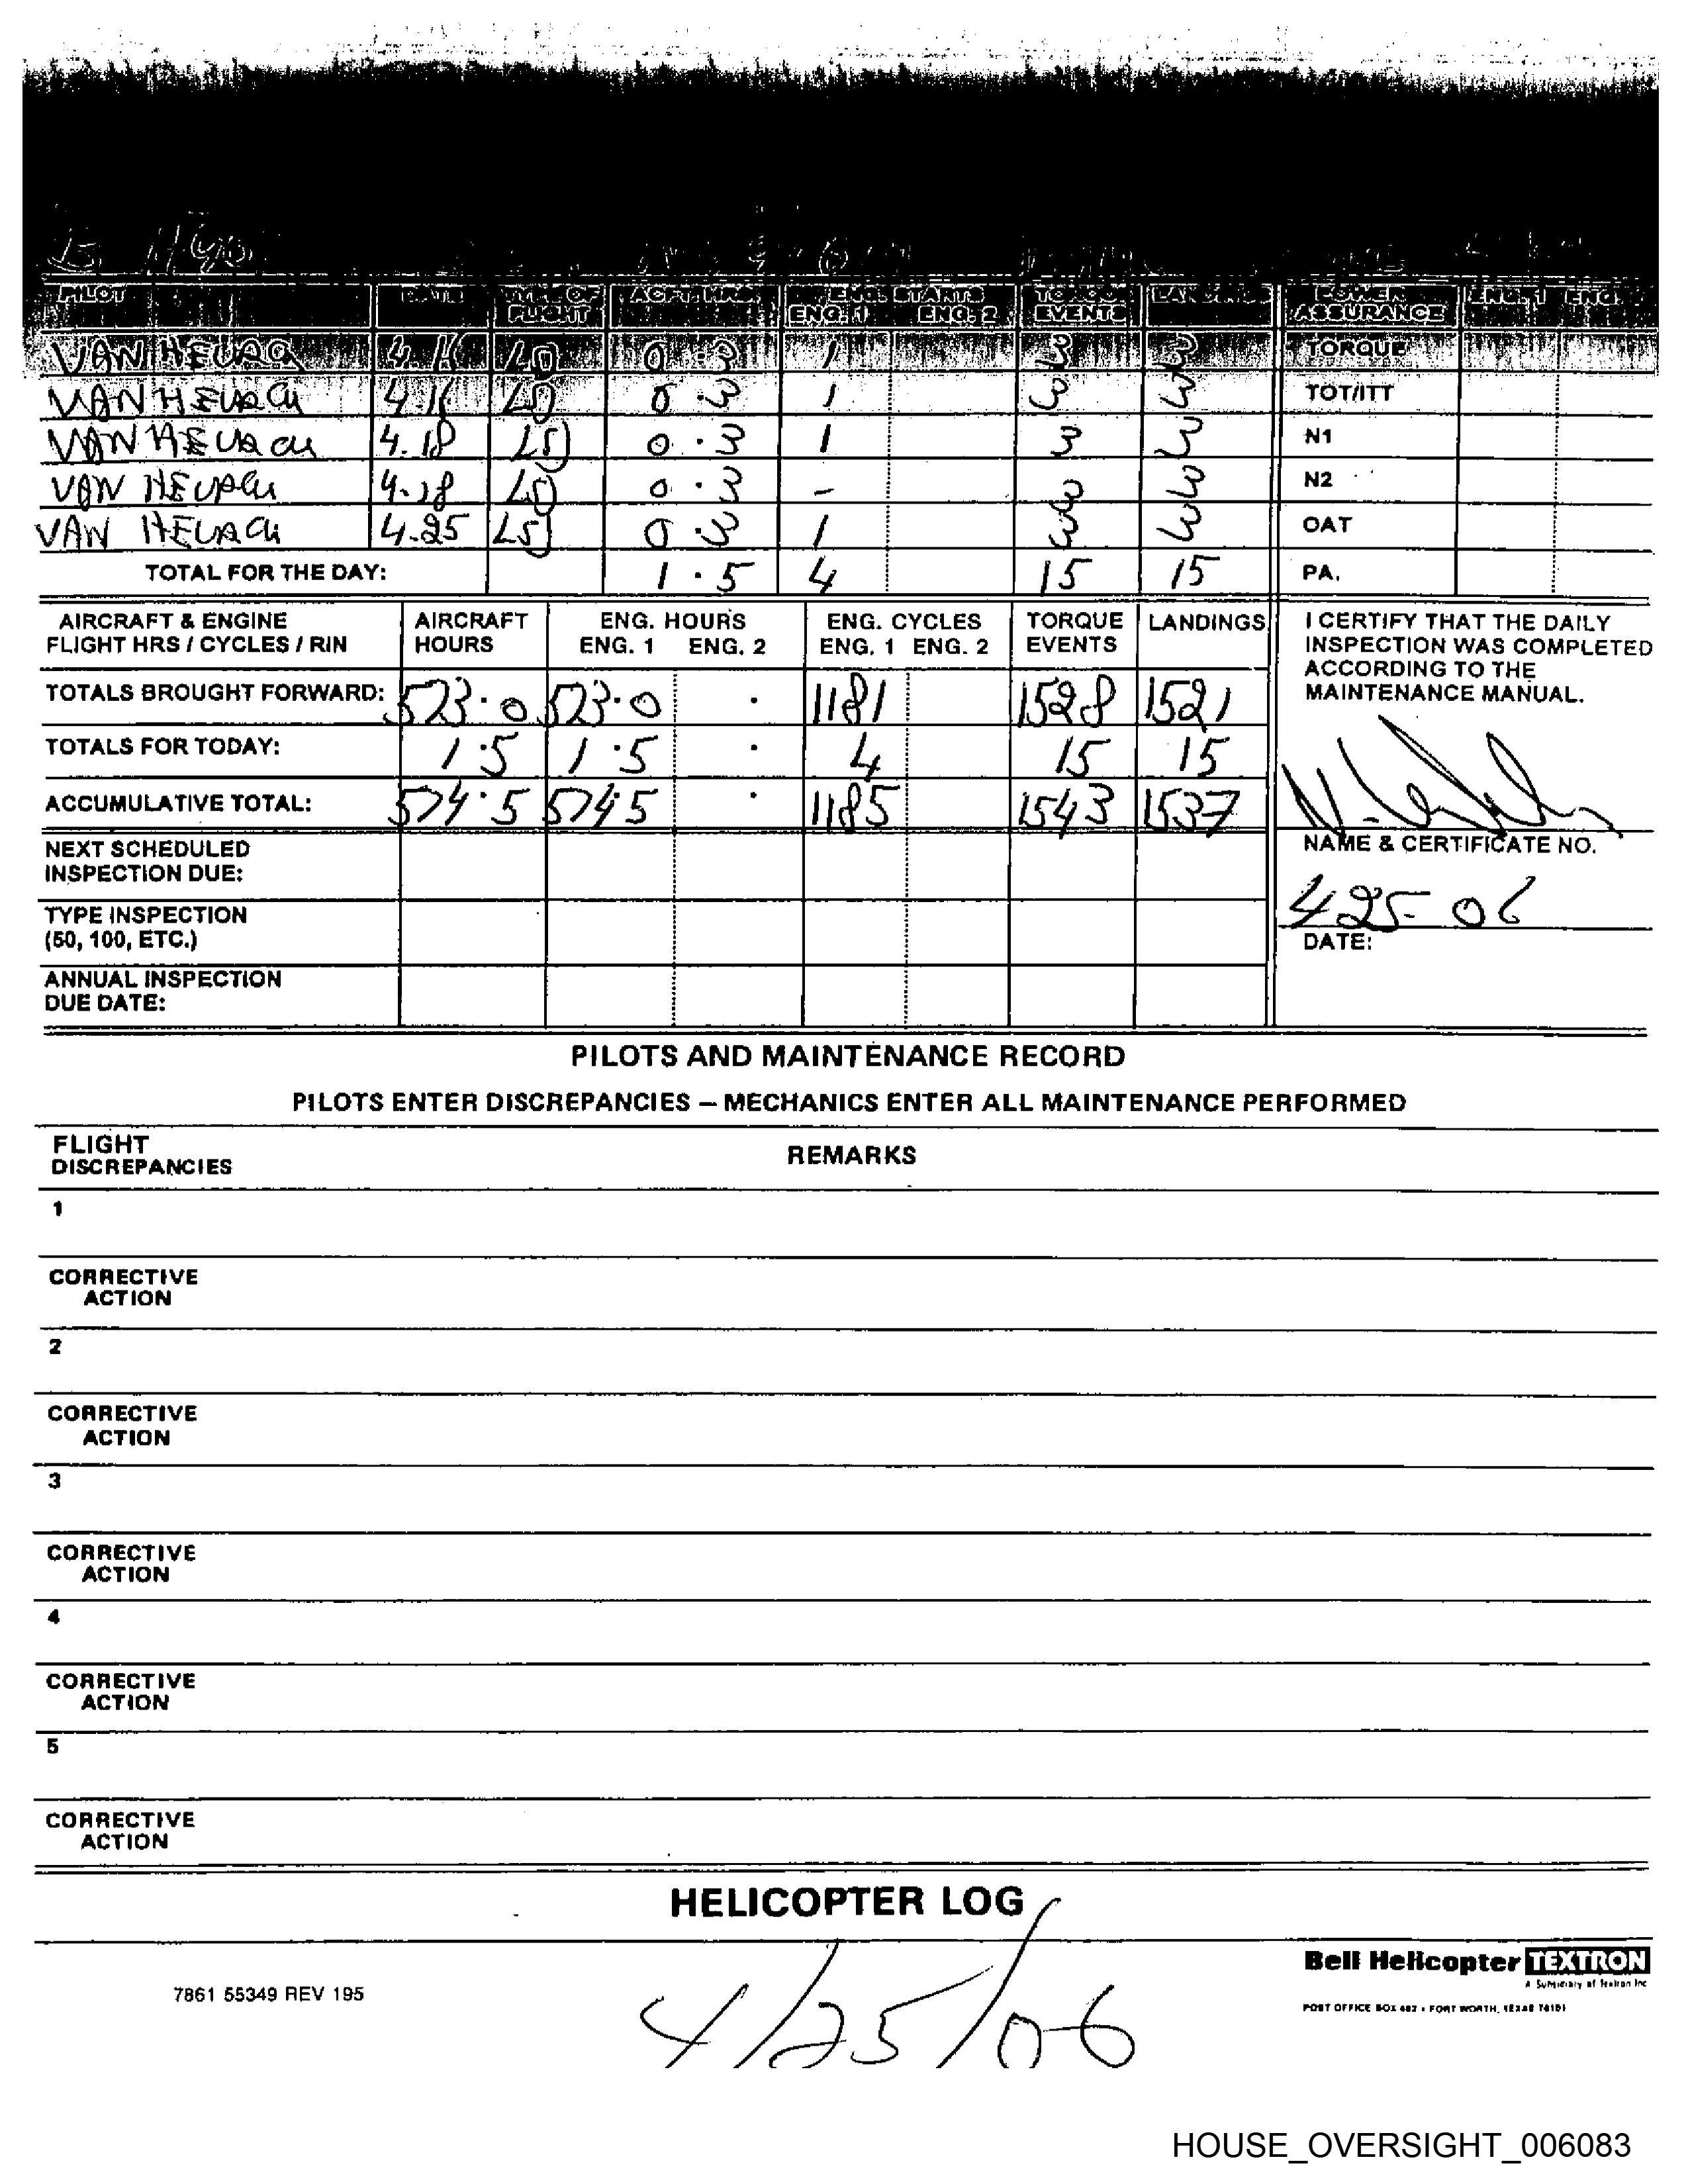 PILOT DATE TYPE OF FLIGHT ACFT. HRS. ENG. STARTS ENG. 1 ENG. 2 TORQUE EVENTS LANDINGS POWER ASSURANCE ENG. 1 ENG.
4.16 0.3 1 3 3 TORQUE
4.16 0.3 1 3 3 TOT/ITT
4.18 0.3 1 3 3 N1
4.18 0.3 - 3 3 N2
VAN 4.25 0.3 1 3 3 OAT
TOTAL FOR THE DAY: 1.5 4 15 15 PA.
AIRCRAFT & ENGINE FLIGHT HRS / CYCLES / RIN AIRCRAFT HOURS ENG. HOURS ENG. 1 ENG. 2 ENG. CYCLES ENG. 1 ENG. 2 TORQUE EVENTS LANDINGS
I CERTIFY THAT THE DAILY
INSPECTION WAS COMPLETED
ACCORDING TO THE
MAINTENANCE MANUAL.
TOTALS BROUGHT FORWARD: 523.0 523.0 . 1181 1528 1521
TOTALS FOR TODAY: 1.5 1.5 . 4 15 15
ACCUMULATIVE TOTAL: 1185 1543 1537
NAME & CERTIFICATE NO.
NEXT SCHEDULED
INSPECTION DUE:
TYPE INSPECTION
(50, 100, ETC.)
425-06
DATE:
ANNUAL INSPECTION
DUE DATE:
PILOTS AND MAINTENANCE RECORD
PILOTS ENTER DISCREPANCIES – MECHANICS ENTER ALL MAINTENANCE PERFORMED
FLIGHT
DISCREPANCIES
REMARKS
1
CORRECTIVE
ACTION
2
CORRECTIVE
ACTION
3
CORRECTIVE
ACTION
4
CORRECTIVE
ACTION
5
CORRECTIVE
ACTION
HELICOPTER LOG
Bell Helicopter TEXTRON
A Subsidiary of Textron Inc
7861 55349 REV 195
POST OFFICE BOX 482 • FORT WORTH, TEXAS 76101
4/25/06
HOUSE_OVERSIGHT_006083